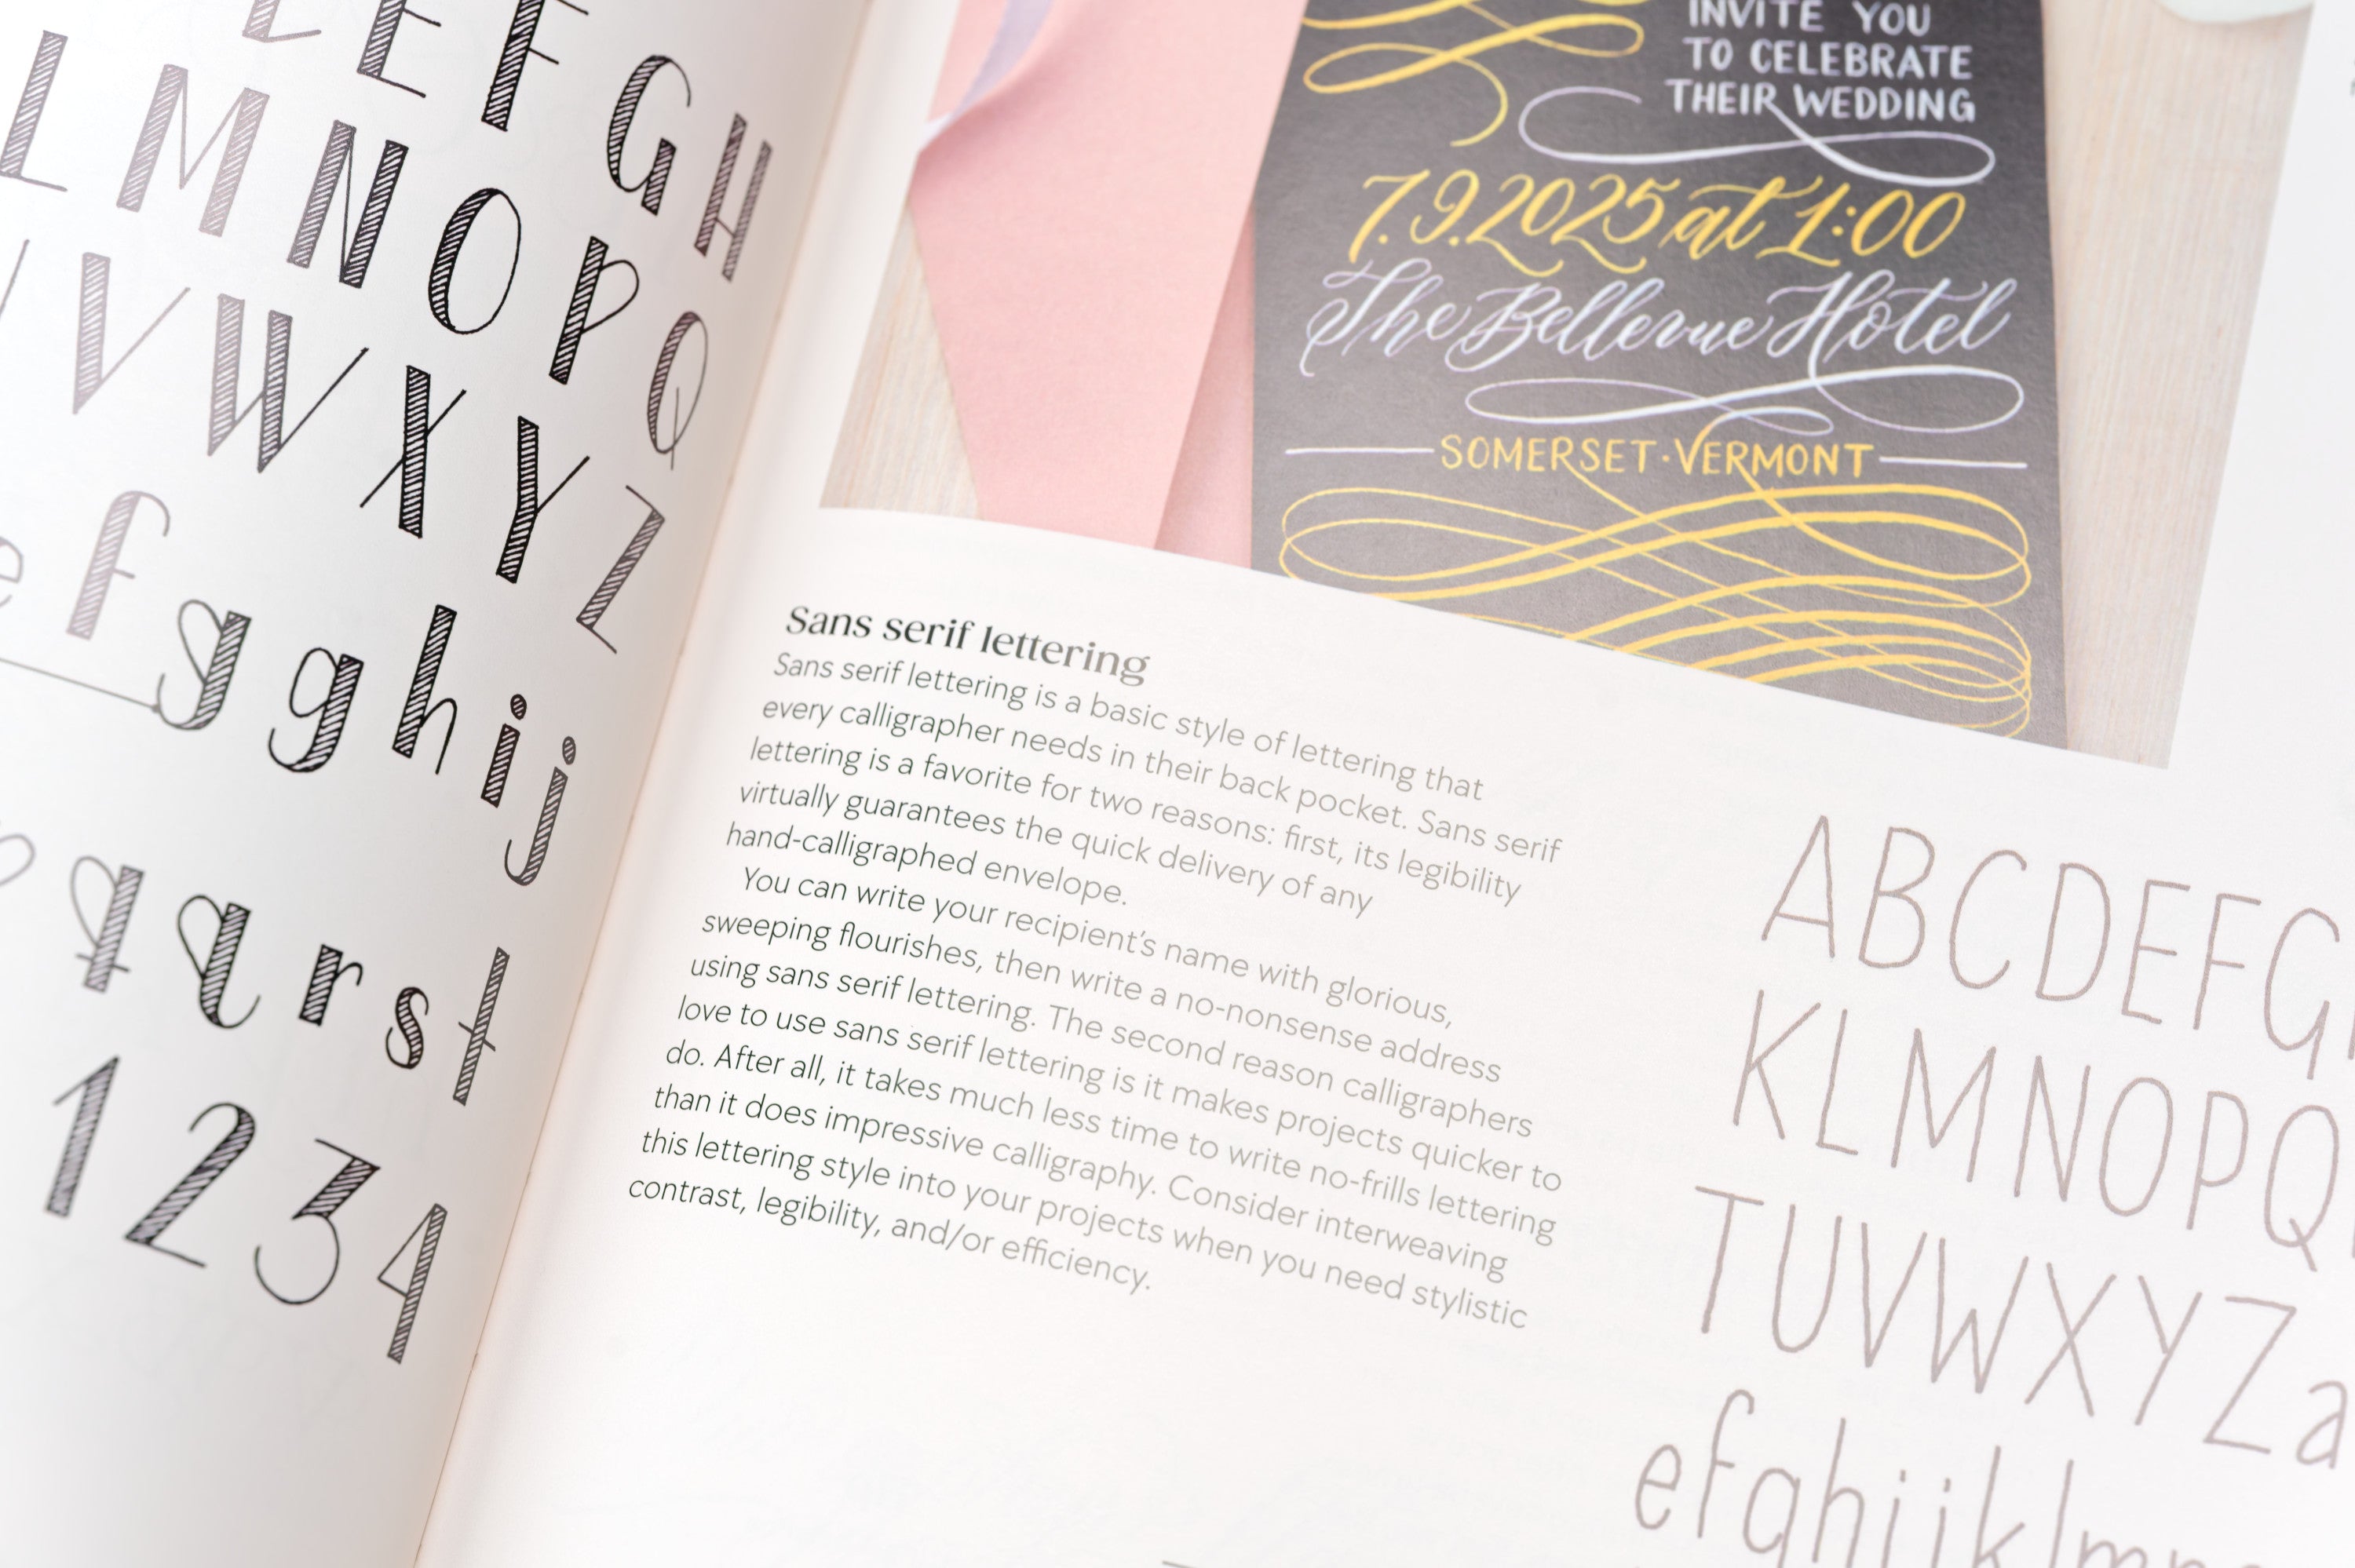 E F G H
L M N O P Q
V W X Y Z
e f g g h i j
q q r s t
1 2 3 4
INVITE YOU
TO CELEBRATE
THEIR WEDDING
7.9.2025 at 1:00
The Bellevue Hotel
SOMERSET · VERMONT
Sans serif lettering
Sans serif lettering is a basic style of lettering that
every calligrapher needs in their back pocket. Sans serif
lettering is a favorite for two reasons: first, its legibility
virtually guarantees the quick delivery of any
hand-calligraphed envelope.
You can write your recipient's name with glorious,
sweeping flourishes, then write a no-nonsense address
using sans serif lettering. The second reason calligraphers
love to use sans serif lettering is it makes projects quicker to
do. After all, it takes much less time to write no-frills lettering
than it does impressive calligraphy. Consider interweaving
this lettering style into your projects when you need stylistic
contrast, legibility, and/or efficiency.
ABCDEFG
KLMNOPQ
TUVWXYZa
efghijklm